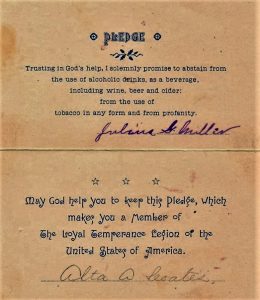 PLEDGE
Trusting in God's help, I solemnly promise to abstain from
the use of alcoholic drinks, as a beverage,
including wine, beer and cider;
from the use of
tobacco in any form and from profanity.
Julius G. Miller
May God help you to keep this Pledge, which
makes you a Member of
The Loyal Temperance Legion of the
United States of America.
Alta A Coates,